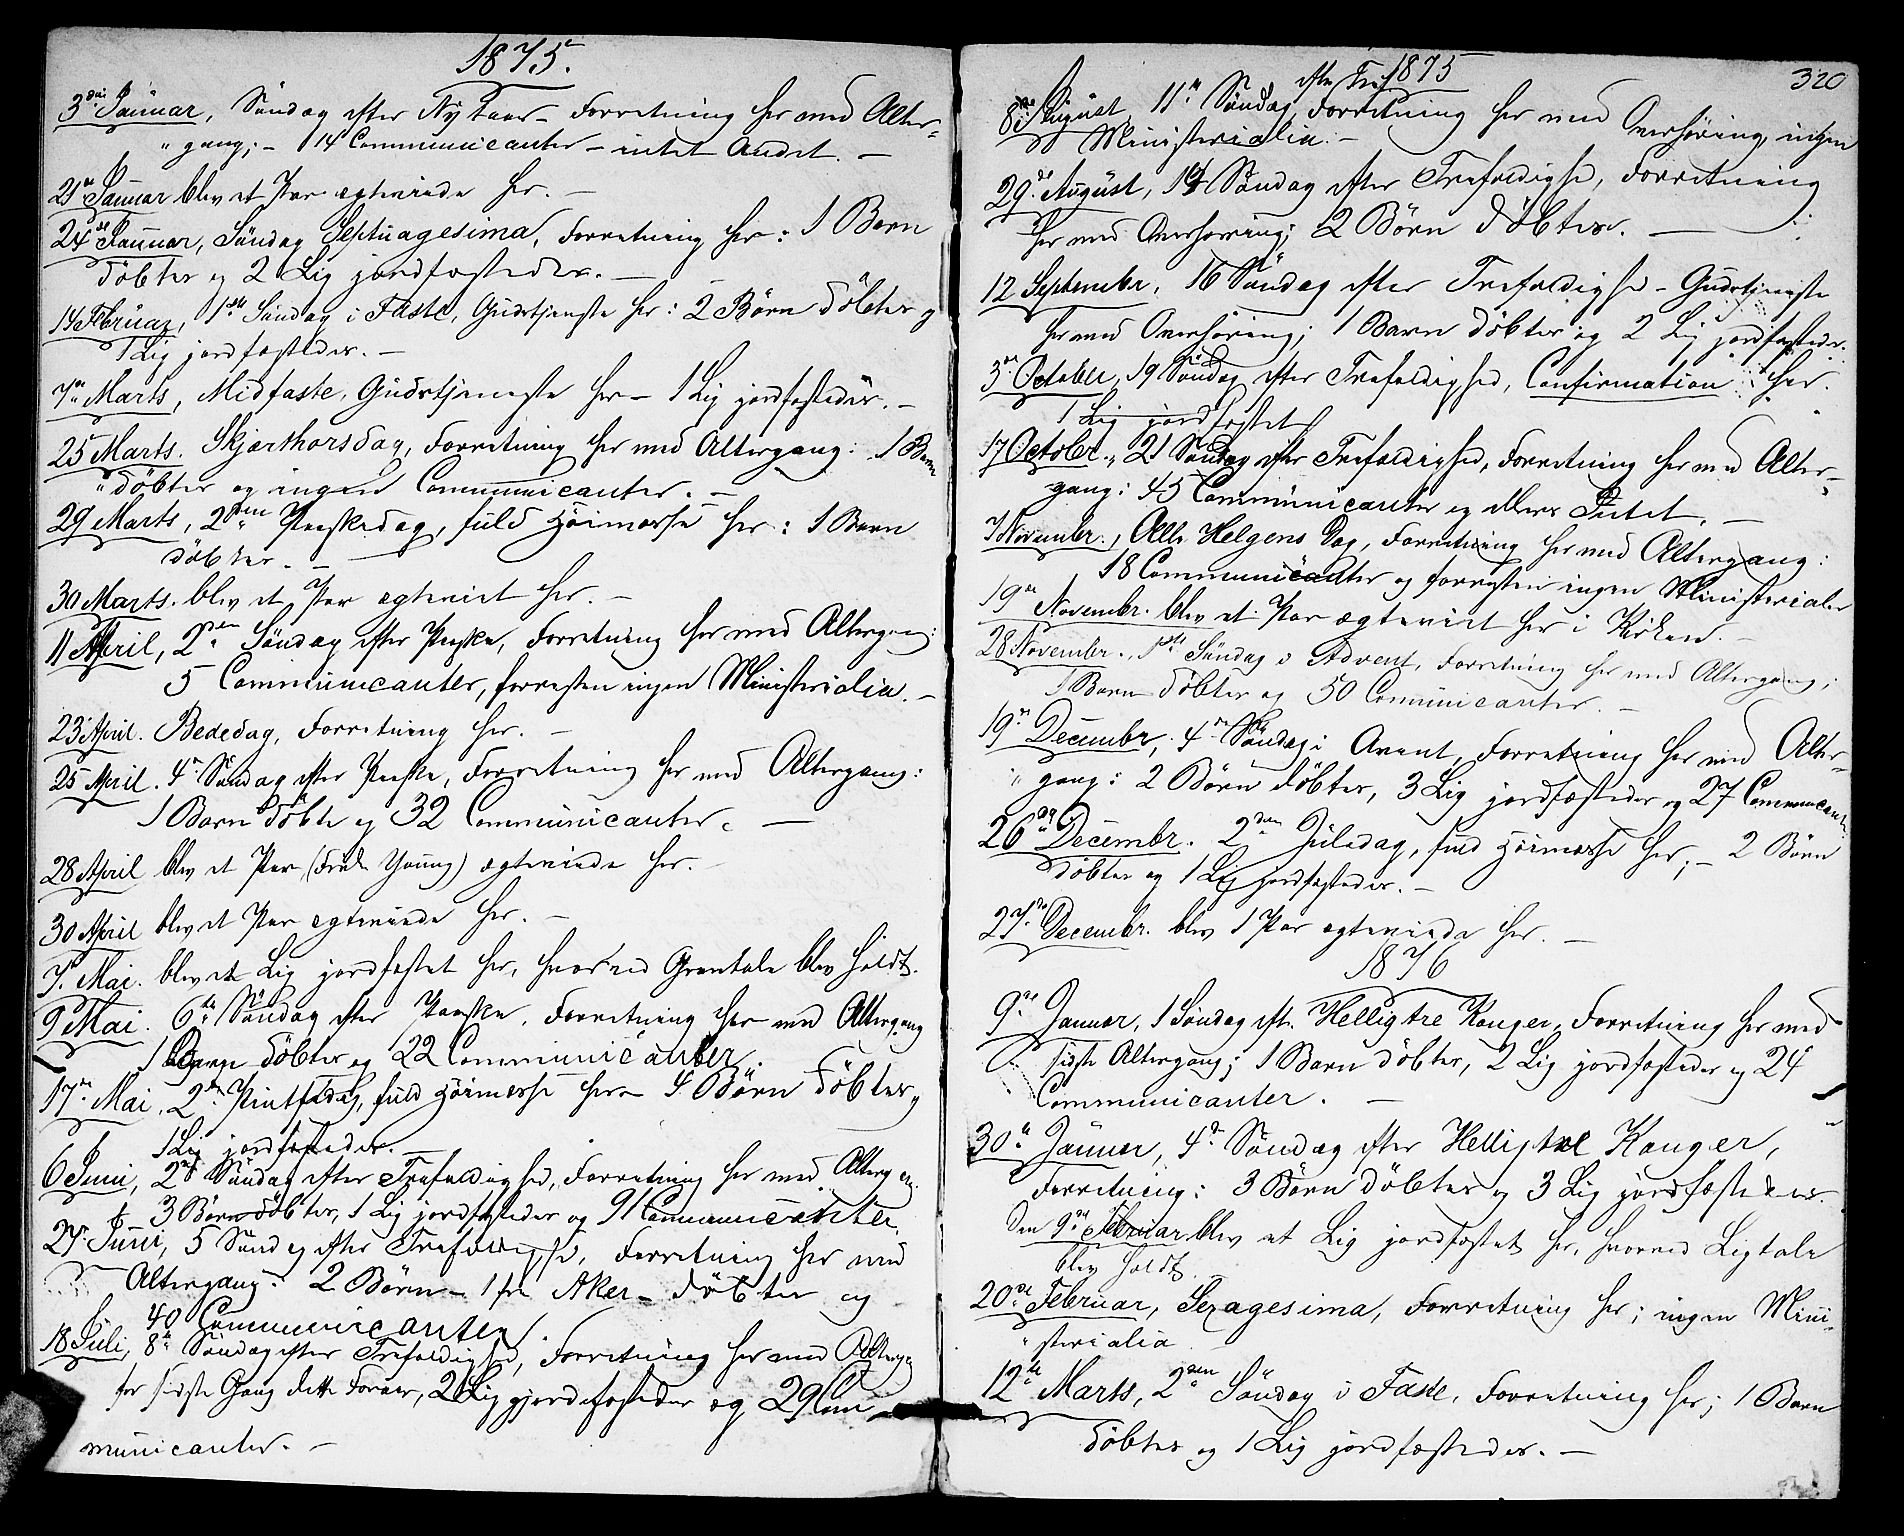 1875.
3die Januar, Søndag efter Nytaar – Forretning her med Alter-
„gang; – 14 Communicanter – intet Andet. –
21de Januar blev et Par egteviede her. –
24de Januar, Søndag Septuagesima, Forretning her: 1 Barn
døbtes og 2 Lig jordfæstedes. –
14 Februar, 1ste Søndag i Faste, Gudstjeneste her: 2 Børn døbtes og
1 Lig jordfæstedes. –
7de Marts, Midfaste, Gudstjeneste her – 1 Lig jordfæstedes. –
25 Marts. Skjærthorsdag, Forretning her med Altergang: 1 Barn
„døbtes og ingen Communicanter. –
29 Marts, 2den Paaskedag, fuld Høimesse her: 1 Barn
døbtes. –
30 Marts. blev et Par egteviet her. –
11 April, 2den Søndag efter Paaske, Forretning her med Altergang:
5 Communicanter, forresten ingen Ministerialia. –
23 April. Bededag, Forretning her. –
25 April. 4de Søndag efter Paaske, Forretning her med Altergang:
1 Barn døbte og 32 Communicanter. –
28 April blev et Par, (Fredr Young) egteviede her.
30 April blev et Par egteviede her. –
7de Mai. blev et Lig jordfæstet her, hvorved Gravtale blev holdt.
9 Mai. 6te Søndag efter Paaske, Forretning her med Altergang
1 Barn døbtes og 22 Communicanter.
17de Mai, 2den Pintsedag, fuld Høimesse her – 4 Børn døbtes og
1 Lig jordfæstedes. –
6 Juni, 2den Søndag efter Trefoldighed, Forretning her med Alterg ang.
3 Børn døbtes, 1 Lig jordfæstedes og 91 Communicanter.
27 Juni, 5 Søndag efter Trefoldighed, Forretning her med
Altergang: 2 Børn – 1 fra Aker – døbtes og
40 Communicanter.
18 Juli, 8de Søndag efter Trefoldighed, Forretning her med Altergang
for sidste Gang dette Foraar, 2 Lig jordfæstedes og 29 Com
municanter. –
1875
320
8de August, 11te Søndag efter Tref. Forretning her med Overhøring, ingen
Ministerialia. –
29de August, 14 Søndag efter Trefoldighed, Forretning
her med Overhøring; 2 Børn døbtes. –
12 September, 16 Søndag efter Trefoldighed – Gudstjeneste
her med Overhøring; 1 Barn døbtes og 2 Lig jordfæstedes.
3de October, 19 Søndag efter Trefoldighed, Confirmation her.
1 Lig jordfæstet
17 Octobr., 21 Søndag efter Trefoldighed, Forretning her med Alter-
gang: 45 Communicanter og ellers Intet. –
7 Novembr., Alle Helgens Dag, Forretning her med Altergang:
18 Communicanter og forresten ingen Ministerialer
19de Novembr. blev et Par egteviet her i Kirken. –
28 Novembr., 1ste Søndag i Advent, Forretning her med Altergang;
1 Barn døbtes og 50 Communicanter. –
19de Decembr, 4de Søndag i Avent, Forretning her med Alter-
„gang: 2 Børn døbtes, 3 Lig jordfæstedes og 27 Communicanter.
26de Decembr. 2den Juledag, fuld Høimesse her; – 2 Børn
døbtes og 1 Lig jordfæstedes. –
27de Decembr. blev 1 Par egteviede her. –
1876
9de Januar, 1 Søndag eft. Helligtre Konger, Forretning her med
sidste Altergang; 1 Barn døbtes, 2 Lig jordfæstedes og 24
Communicanter. –
30te Januar, 4de Søndag efter Helligtre Konger,
Forretning: 3 Børn døbtes og 3 Lig jordfæstedes.
Den 9de Februar blev et Lig jordfæstet her, hvorved Ligtale
blev holdt.
20de Februar, Sexagesima, Forretning her; ingen Mini-
„sterialia
12te Marts, 2den Søndag i Faste, Forretning her; 1 Barn
døbtes og 1 Lig jordfæstedes. –